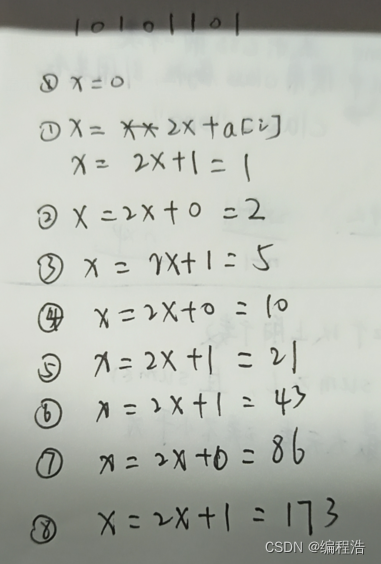 10101101
⓪ x=0
① x= 2x+a[i]
x= 2x+1=1
② x=2x+0=2
③ x=2x+1=5
④ x=2x+0=10
⑤ x=2x+1=21
⑥ x=2x+1=43
⑦ x=2x+0=86
⑧ x=2x+1=173
CSDN @编程浩